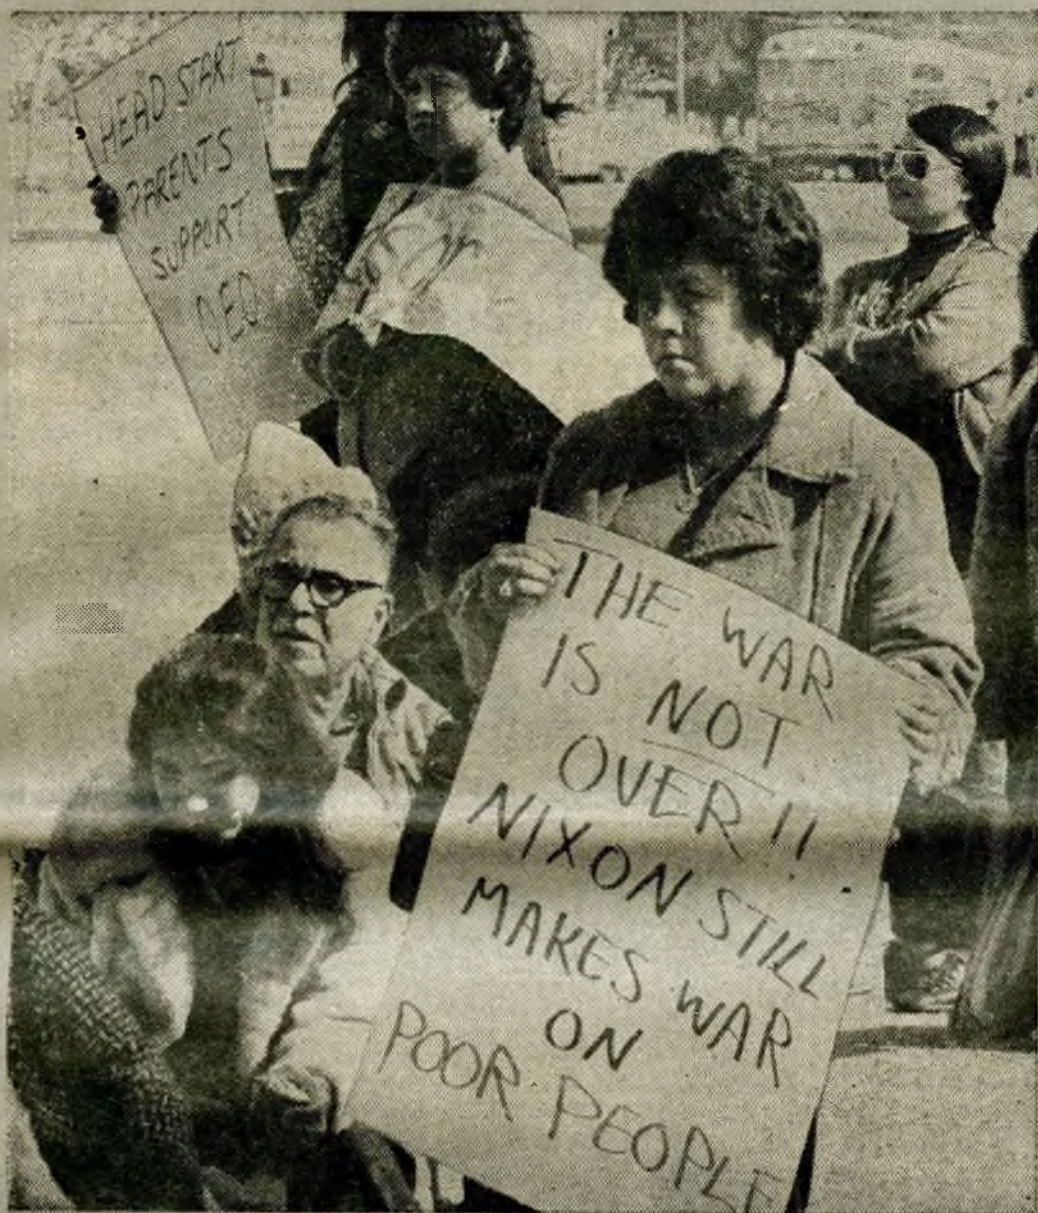 HEAD START
PARENTS
SUPPORT
OEO
THE WAR
IS NOT
OVER!!
NIXON STILL
MAKES WAR
ON
POOR PEOPLE